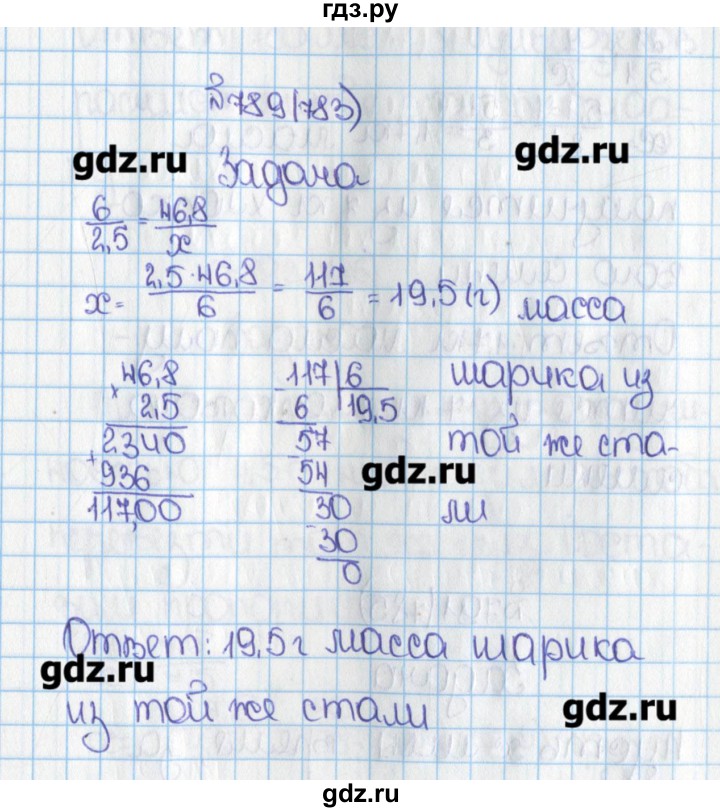 гдз.ру
№789(783)
gdz.ru
gdz.ru
Задача
6/2,5 = 46,8/x
x = 2,5·46,8/6 = 117/6 = 19,5 (г) масса
шарика из
той же ста-
ли
46,8
×
2,5
2340
+
936
117,00
117 | 6
6 | 19,5
57
54
30
30
0
gdz.ru
Ответ: 19,5 г масса шарика
из той же стали
gdz.ru
gdz.ru
gdz.ru